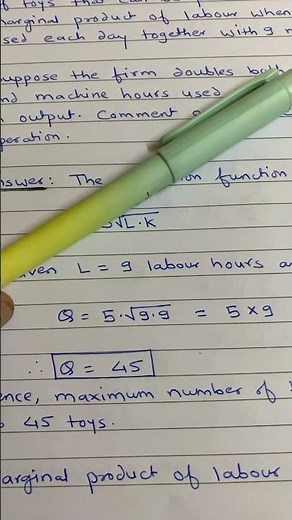 of toys that can be
marginal product of labour when
used each day together with 9 m
suppose the firm doubles both
and machine hours used
output. Comment
operation.
Answer: The function
√L.K
L = 9 labour hours a
Q = 5.√9.9 = 5 x 9
∴ Q = 45
ence, maximum number of
45 toys.
arginal product of labour